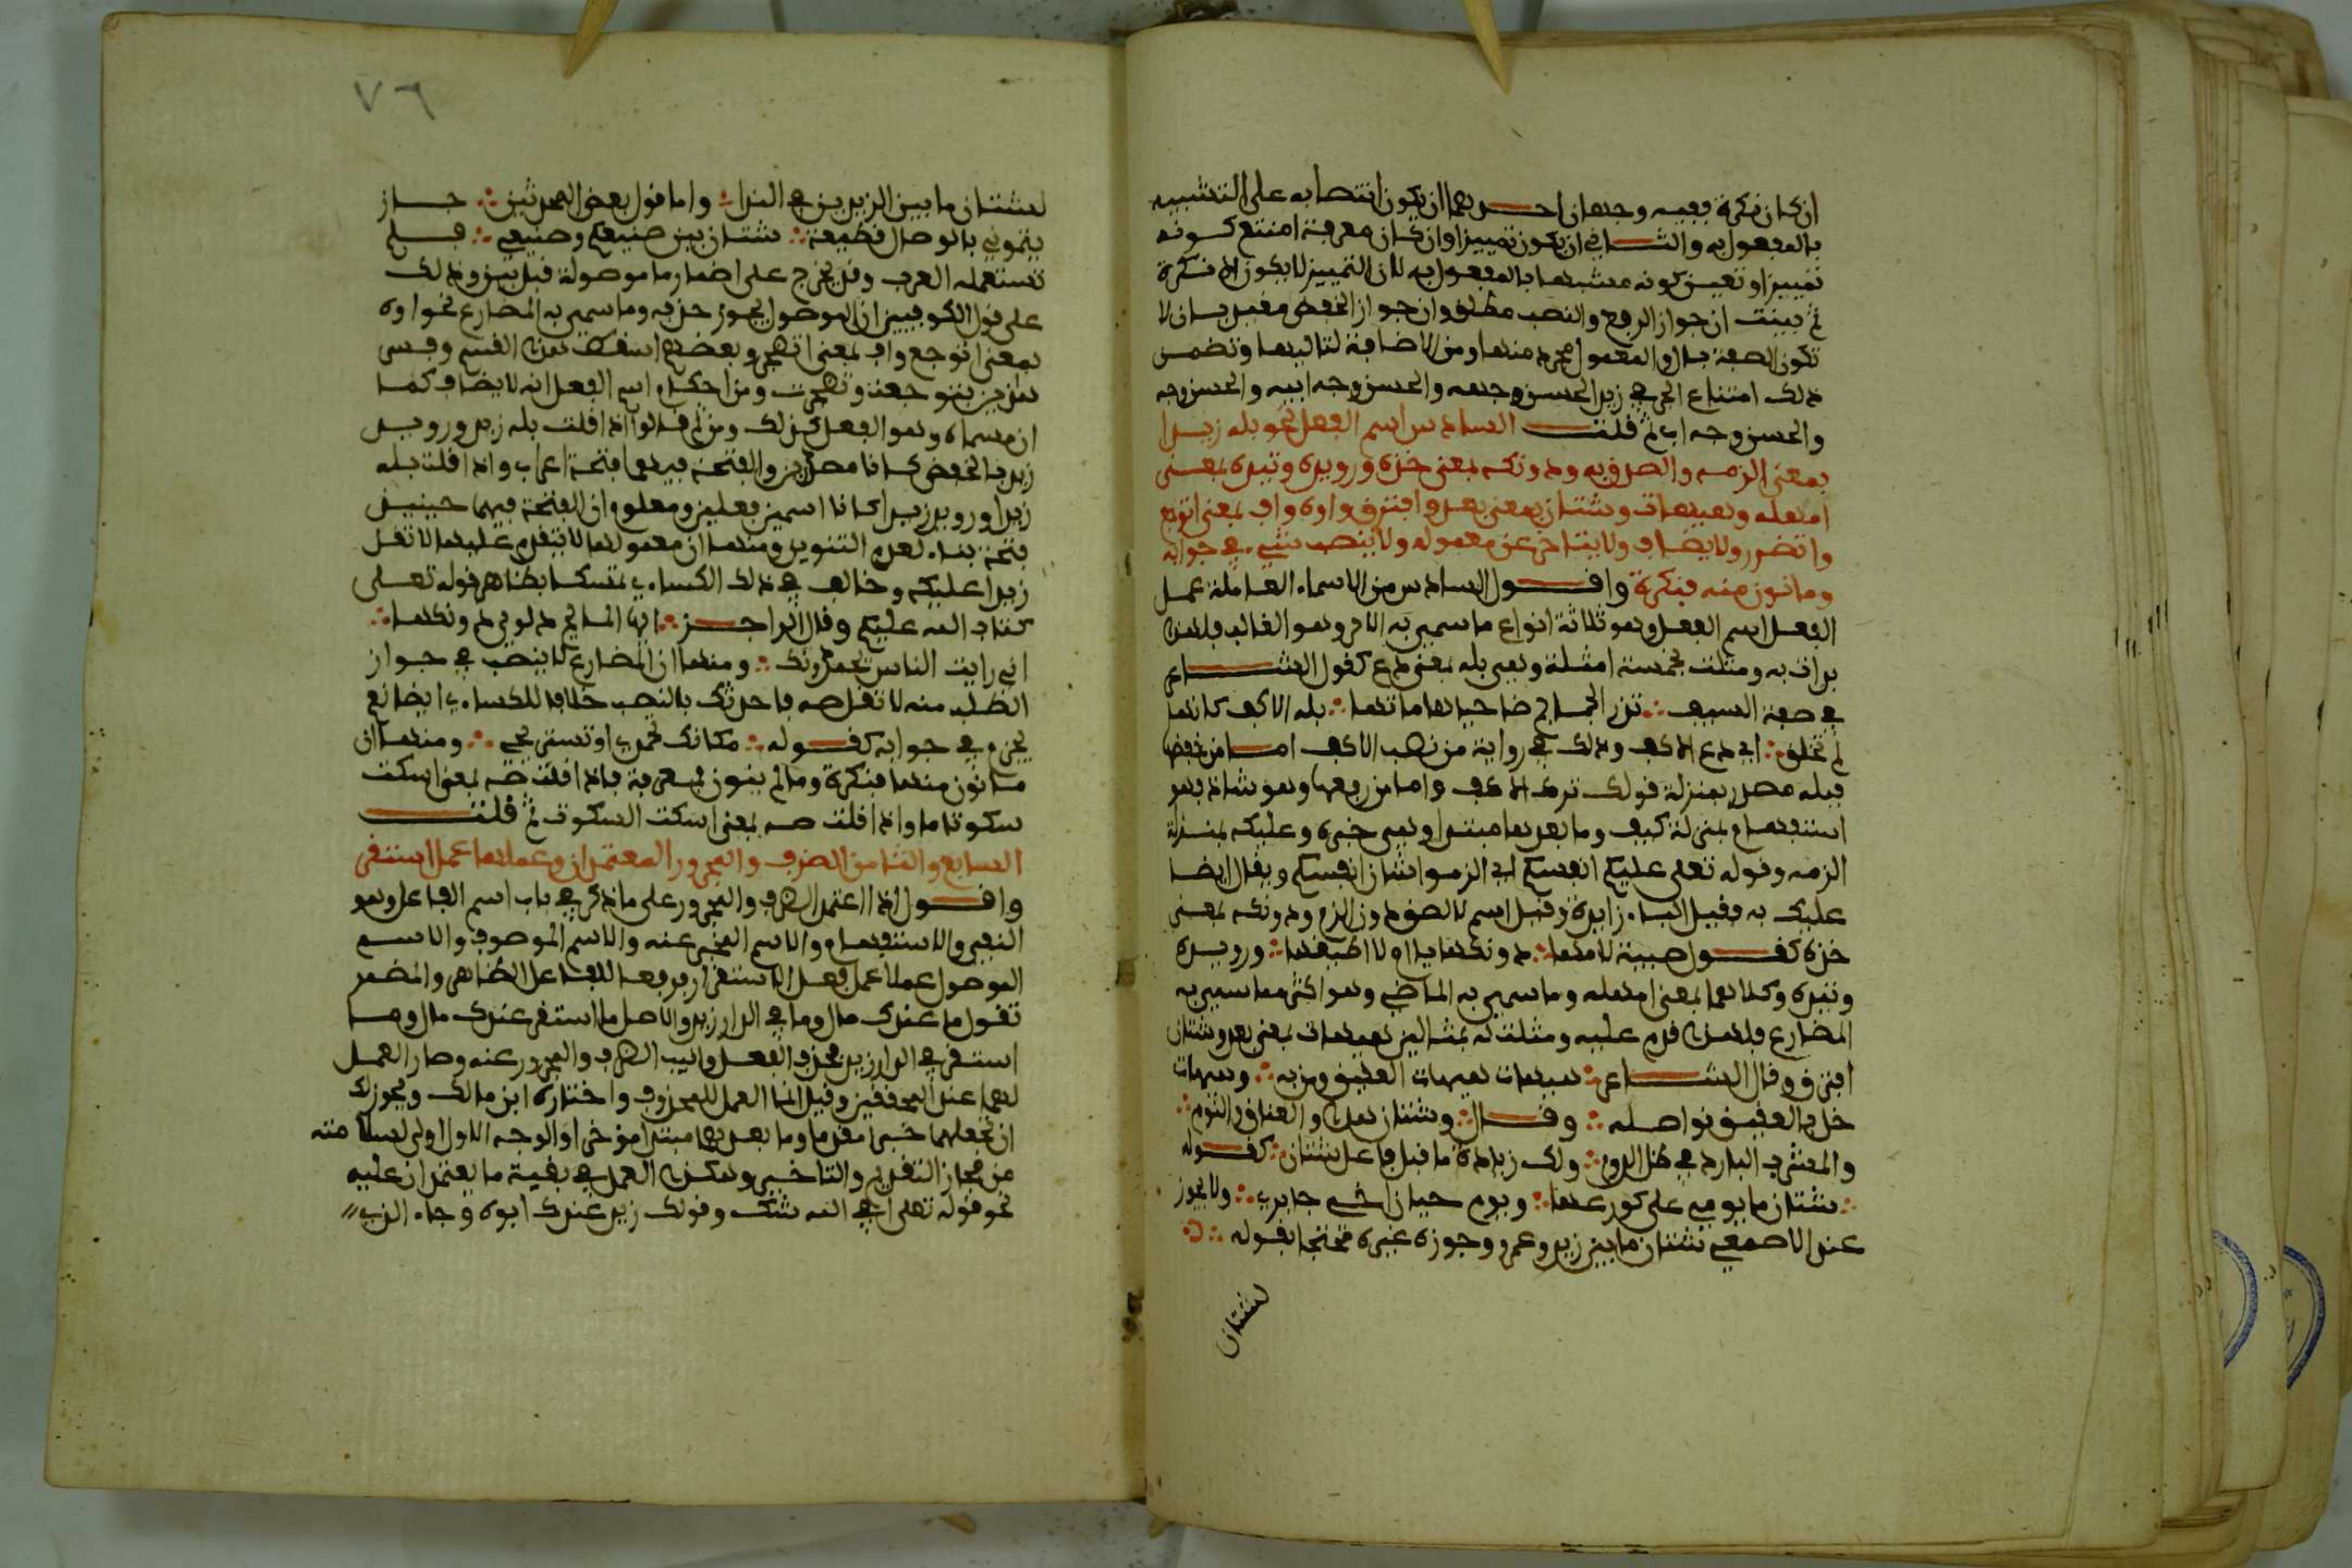 ان كان نكرة ففيه وجهان احدهما ان يكون انتصابه على التشبيه
بالمفعول به والثاني ان يكون تمييزا وان كان معرفة امتنع كونه
تمييزا وتعين كونه مشبها بالمفعول به لان التمييز لا يكون الا نكرة
ثم بينت ان جواز الرفع والنصب مطلق وان جواز الخفض مقيد بان لا
تكون الصفة بال والمعمول مجرد منها ومن الاضافة لتاليها وتضمن
ذلك امتناع الجر في زيد الحسن وجهه والحسن وجه ابيه والحسن وجه
والحسن وجه اب ثم قلت السادس اسم الفعل نحو بله زيدا
بمعنى الزمه والصق به ودونكه بمعنى خذه ورويده وتيده بمعنى
امهله وهيهات وشتان بمعنى بعد وافترق واوه واف بمعنى اتوجع
واتضجر ولا يضاف ولا يتاخر عن معموله ولا ينصب شيء في جوابه
وما نون منه فنكرة واقول السادس من الاسماء العاملة عمل
الفعل اسم الفعل وهو ثلاثة انواع ما سمي به الامر وهو الغالب فلهذا
بدات به ومثلت بخمسة امثلة وهي بله بمعنى دع كقول الشاعر
في صفة السيوف تذر الجماجم ضاحيا هاماتها بله الاكف كانها
لم تخلق اي دع الاكف وذلك في رواية من نصب الاكف اما من خفض
فبله مصدر بمنزلة قولك ترك الاكف واما من رفعها وهو شاذ فهو
استفهام بمنزلة كيف وما بعدها مبتدا وهي خبره وعليكه بمنزلة
الزمه وقوله تعلى عليكم انفسكم اي الزموا شان انفسكم ويقال ايضا
عليك به فقيل الباء زايدة وقيل اسم لالصق دون الزم ودونكه بمعنى
خذه كقول صبية لامها دونكها يا ام لا اطيقها ورويده
وتيده وكلاهما بمعنى امهله وما سمي به الماضي وهو اكثر مما سمي به
المضارع فلهذا قدم عليه ومثلت له بمثالين هيهات بمعنى بعد وشتان
افترق وقال الشاعر هيهات هيهات العقيق ومن به وهيهات
خل بالعقيق نواصله وقال وشتان هذا والعناق والنوم
والمشرب البارد في ظل الدوم ولك زيادة ما قبل فاعل شتان كقوله
شتان ما يومي على كورها ويوم حيان اخي جابر ولا يجوز
عند الاصمعي شتان ما بين زيد وعمرو وجوزه غيره محتجا بقوله
لشتان
٧٦
لشتان ما بين اليزيدين في الندا واما قول بعض المحدثين جاز
يتموني بالوصال قطيعة شتان بين صنيعكم وصنيعي فلم
تستعمله العرب وقد يخرج على اضمار ما موصولة قبل بين وذلك
على قول الكوفيين ان الموصول يجوز حذفه وما سمي به المضارع نحو اوه
بمعنى اتوجع واف بمعنى اتضجر وبعضهم اسقط هذا القسم وفسر
هذين بتوجعت وتضجرت ومن احكام اسم الفعل انه لا يضاف كما
ان مسماه وهو الفعل كذلك ومن ثم قالوا اذا قلت بله زيد ورويد
زيد بالخفض كانا مصدرين والفتحة فيهما فتحة اعراب واذا قلت بله
زيدا ورويد زيدا كانا اسمين فعلين ومعلوم ان الفتحة فيهما حينيذ
فتحة بناء لعدم التنوين ومنها ان معمولها لا يتقدم عليها لا تقل
زيدا عليكه وخالف في ذلك الكساءي تمسكا بظاهر قوله تعلى
كتاب الله عليكم وقال الراجز ايها المايح دلوي دونكها
اني رايت الناس يحمدونك ومنها ان المضارع لا ينصب في جواز
الطلب منه لا تقل صه فاحدثك بالنصب خلافا للكساءي ايضا نعم
يجزم في جوابه كقوله مكانك تحمدي او تستريحي ومنها ان
ما نون منها فنكرة وما لم ينون فمعرفة فاذا قلت صه بمعنى اسكت
سكوتا ما واذا قلت صه بمعنى اسكت السكوت ثم قلت
السابع والثامن الظرف والمجرور المعتمدان وعملهما عمل استقر
واقول اذا اعتمد الظرف والمجرور على ما ذكر في باب اسم الفاعل وهو
النفي والاستفهام والاسم المخبر عنه والاسم الموصوف والاسم
الموصول عملا عمل فعل الاستقرار فرفعا الفاعل الظاهر والمضمر
تقول ما عندك مال وما في الدار زيد والاصل ما استقر عندك مال وما
استقر في الدار زيد فحذف الفعل وانيب الظرف والمجرور عنه وصار العمل
لهما عند المحققين وقيل انما العمل للمحذوف واختاره ابن مالك ويجوز لك
ان تجعلهما خبرا مقدما وما بعدهما مبتدا موخرا والوجه الاول اولى لسلامته
من مجاز التقديم والتاخير وهكذا العمل في بقية ما يعتمدان عليه
نحو قوله تعلى افي الله شك وقولك زيد عندك ابوه وجاء الذي